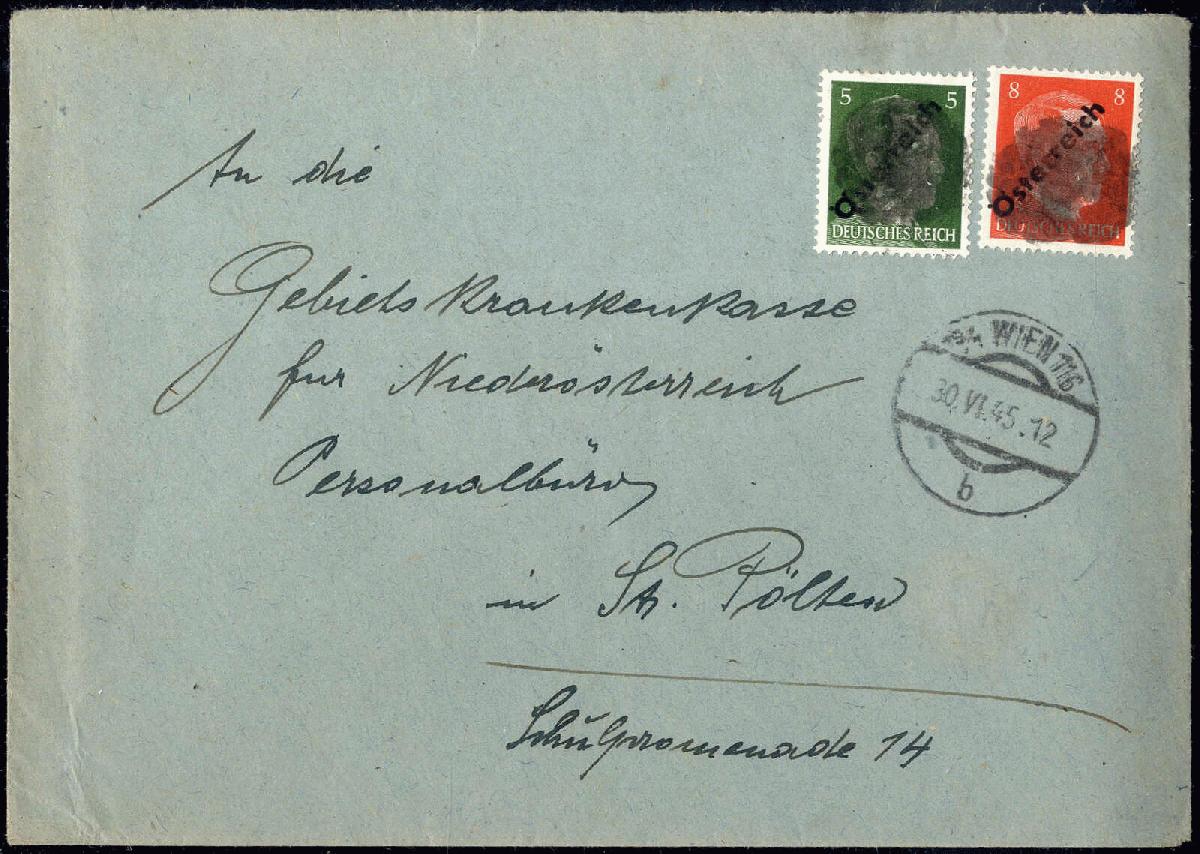 5 5
Österreich
DEUTSCHES REICH
8 8
Österreich
DEUTSCHES REICH
An die
Gebietskrankenkasse
für Niederösterreich
Personalbüro
in St. Pölten
Schulpromenade 14
WIEN 116
30.VI.45.12
b